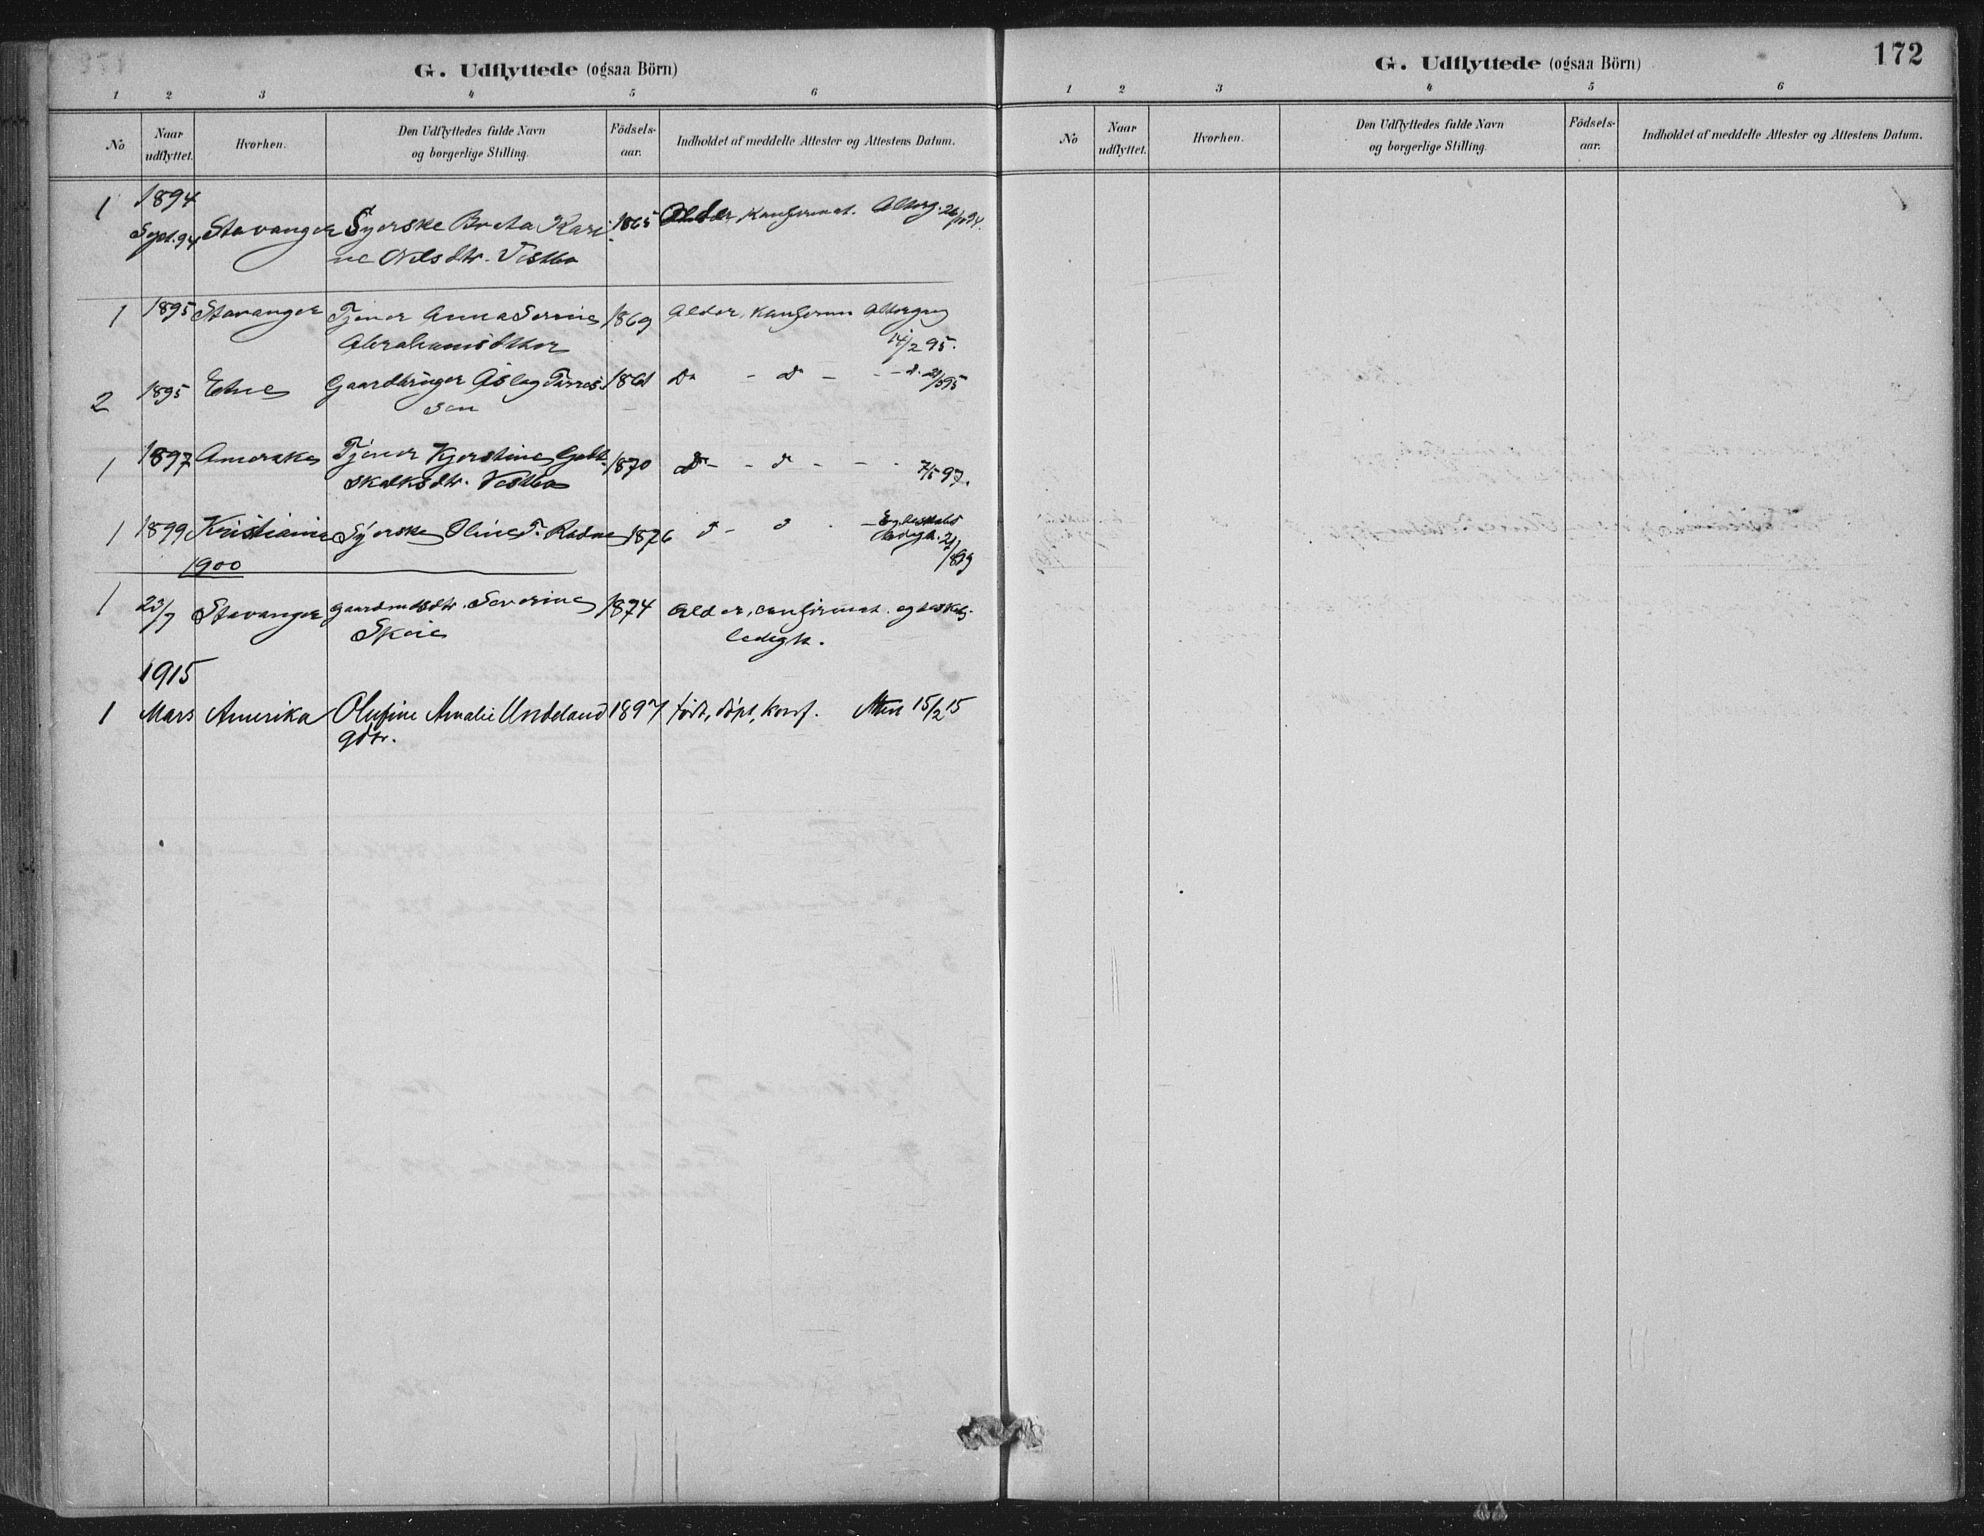 G. Udflyttede (ogsaa Börn)
1 2 3 4 5 6
No
Naar udflyttet.
Hvorhen.
Den Udflyttedes fulde Navn og borgerlige Stilling.
Födsels-aar.
Indholdet af meddelte Attester og Attestens Datum.
1894
1 Sept. 94 Stavanger Syerske Breta Kari 1865 Alder, Konfirmat. Alterg. 26/10 94.
ne Nilsdtr. Vestbø
1 1895 Stavanger Tjener Anna Serine 1869 Alder, Konfirm Altergng
Abrahamsdtter 14/2 95.
2 1895 Etne Gaardbruger Aslag Tørres 1861 Do - d - - d. 21/3 95
sen
1 1897 Amerika Tjener Kjerstine Gott 1870 Do - - d - - - 7/5 97.
skalksdtr. Vestbø
1 1899 Kristiania Syerske Oline T. Radne 1876 d - d - Egteskabs
ledigh. 21/
1899
1900
1 23/7 Stavanger gaardmdsdtr. Severine 1874 Alder, confirmat. egteskabs
Skeie ledigh.
1915
1 Mars Amerika Olufine Amalie Undeland 1897 født, døpt, konf. Attest 15/2 15
gdtr.
G. Udflyttede (ogsaa Börn)
172
1 2 3 4 5 6
No
Naar udflyttet.
Hvorhen.
Den Udflyttedes fulde Navn og borgerlige Stilling.
Födsels-aar.
Indholdet af meddelte Attester og Attestens Datum.